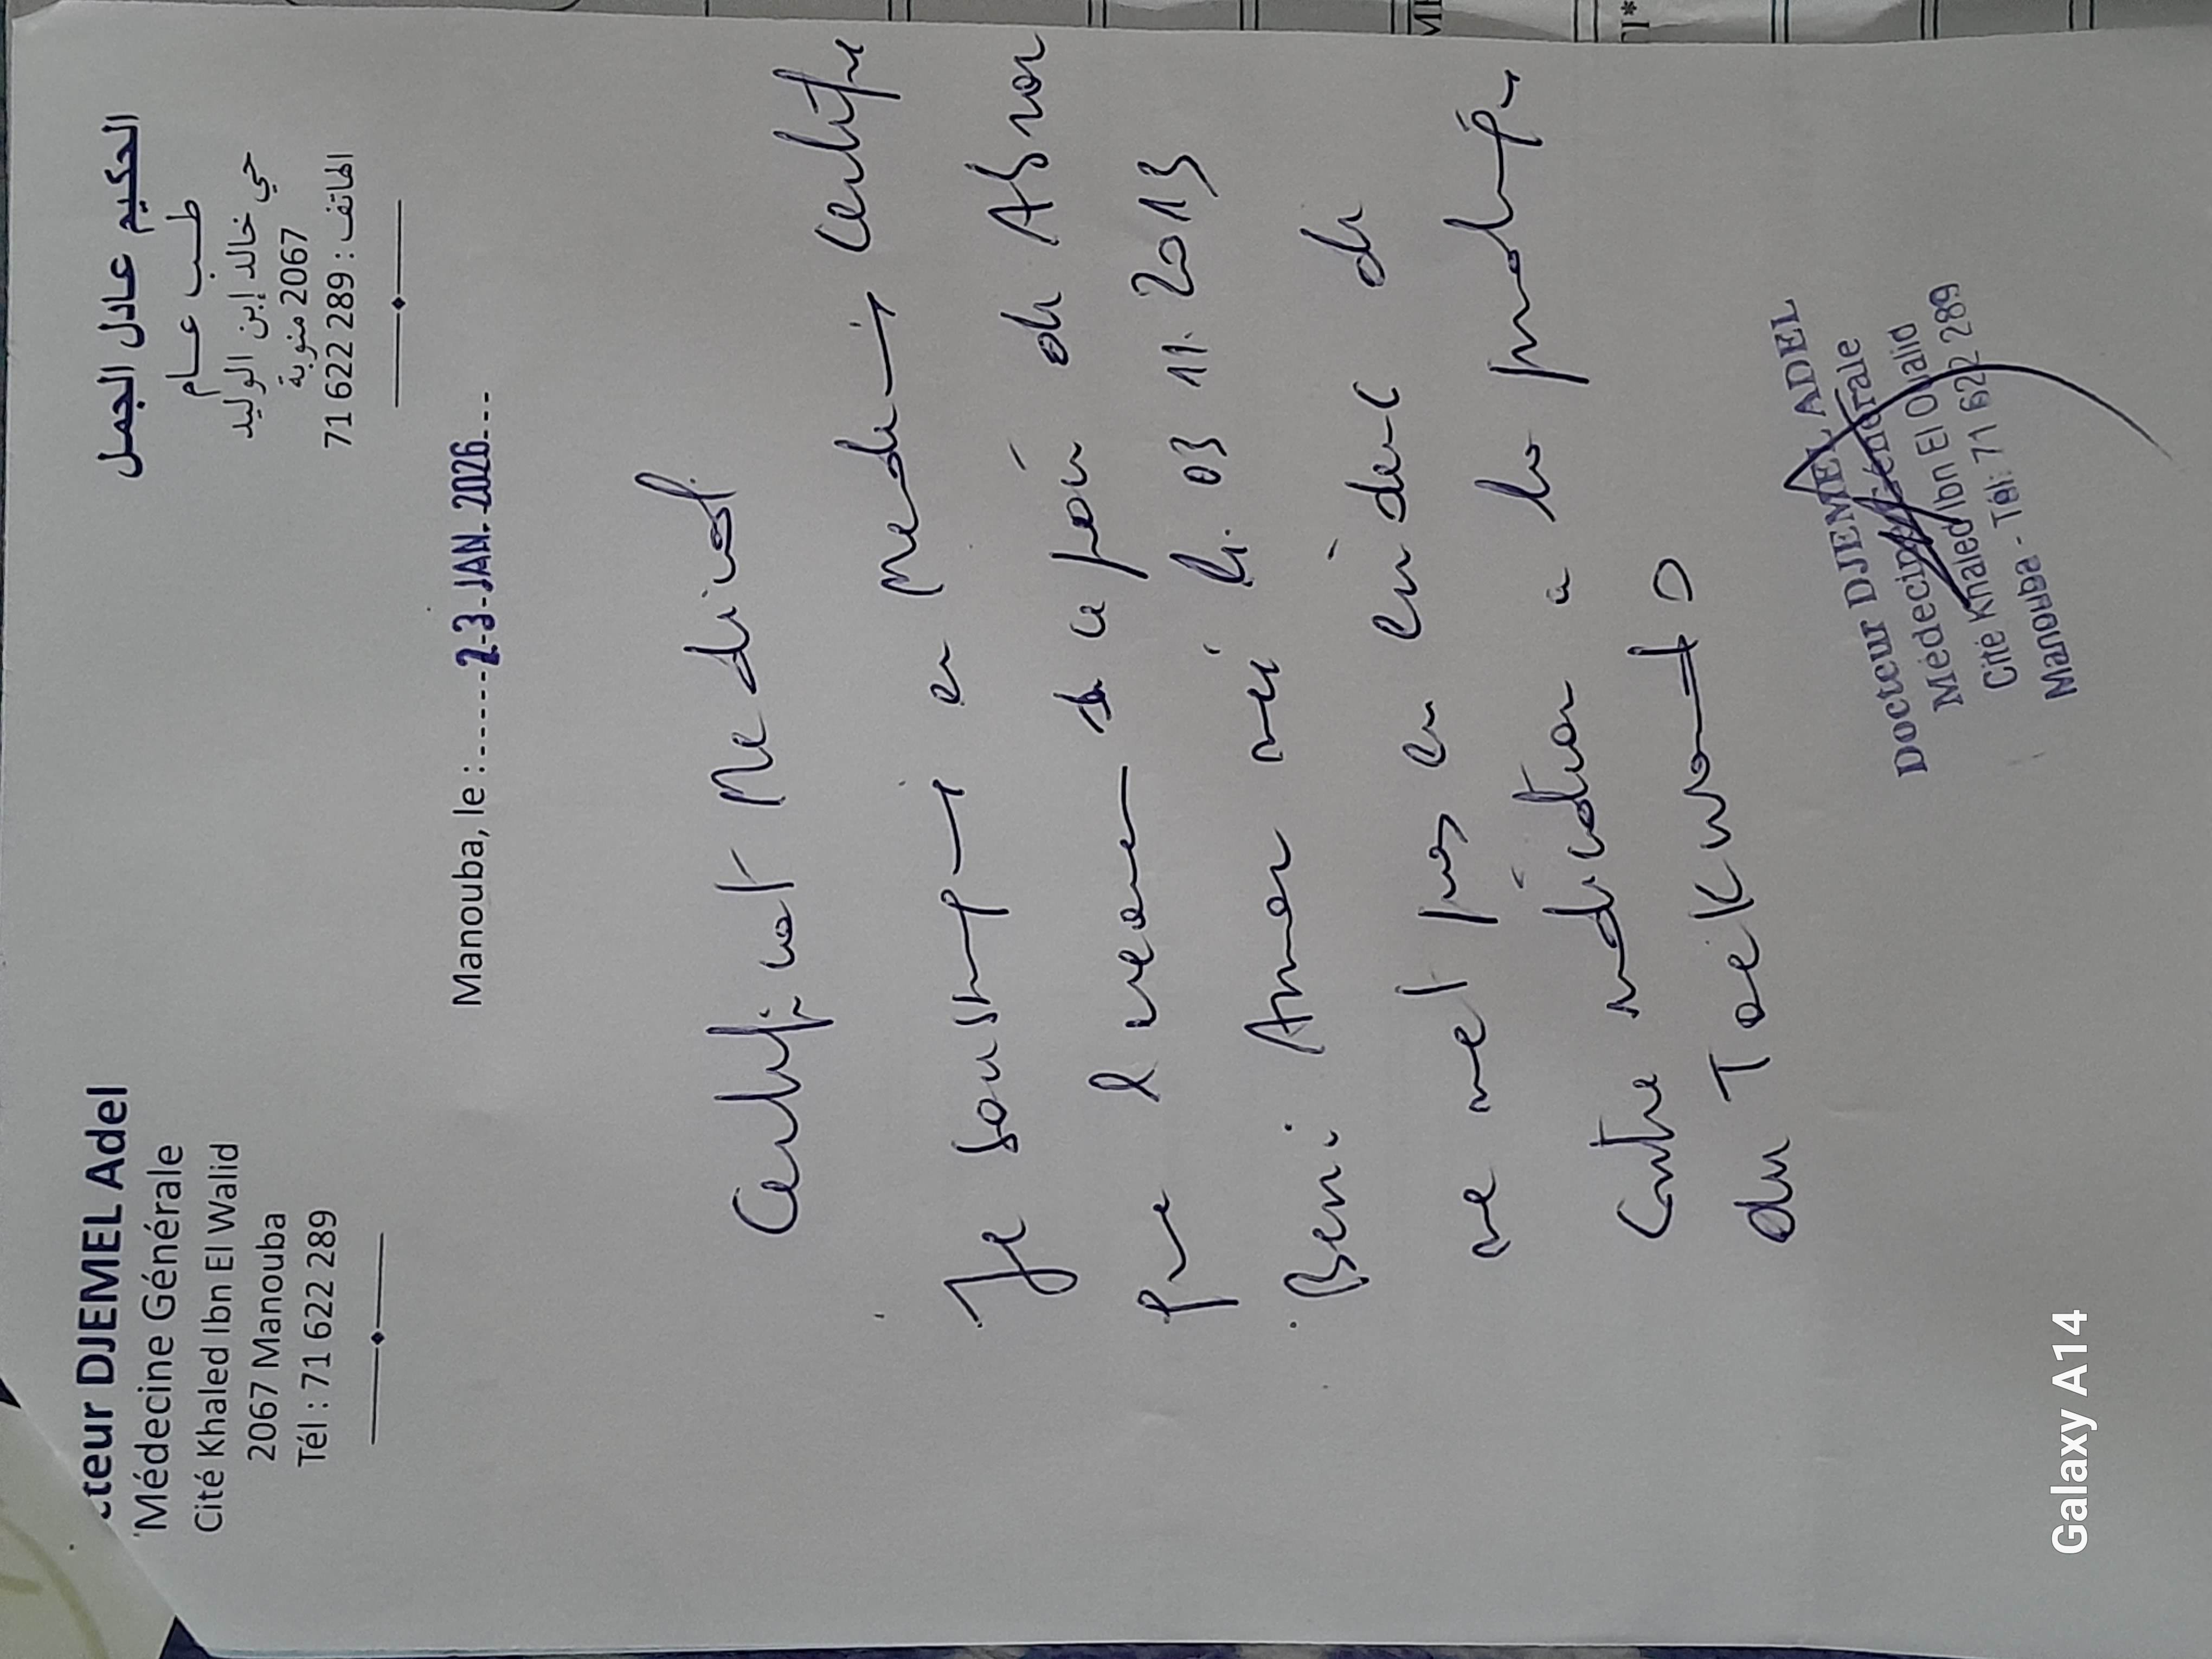 cteur DJEMEL Adel
Médecine Générale
Cité Khaled Ibn El Walid
2067 Manouba
Tél : 71 622 289
الحكيم عادل الجمل
طب عام
حي خالد إبن الوليد
2067 منوبة
الهاتف : 289 622 71
Manouba, le : 23 JAN. 2026
Certificat Medical
Je soussigné en Medecin certifie
que l'examen de ce jour de
Beni Amor né le 03 11. 2013
ne met pas en évidence de
contre indication a la pratique
du Taekwondo
Docteur DJEMEL ADEL
Médecine Générale
Cité Khaled Ibn El Oualid
Manouba - Tél: 71 622 289
Galaxy A14